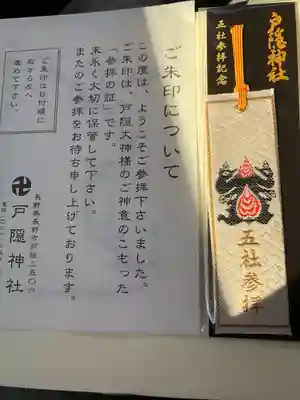 ご朱印について
この度は、ようこそご参拝下さいました。
ご朱印は、戸隠大神様のご神意のこもった
「参拝の証」です。
末永く大切に保管して下さい。
またのご参拝をお待ち申し上げております。
ご朱印は日付順に
右から左へ
進めて下さい。
長野県長野市戸隠三五〇六
卍戸隠神社
戸隠神社
五社参拝記念
五社参拝